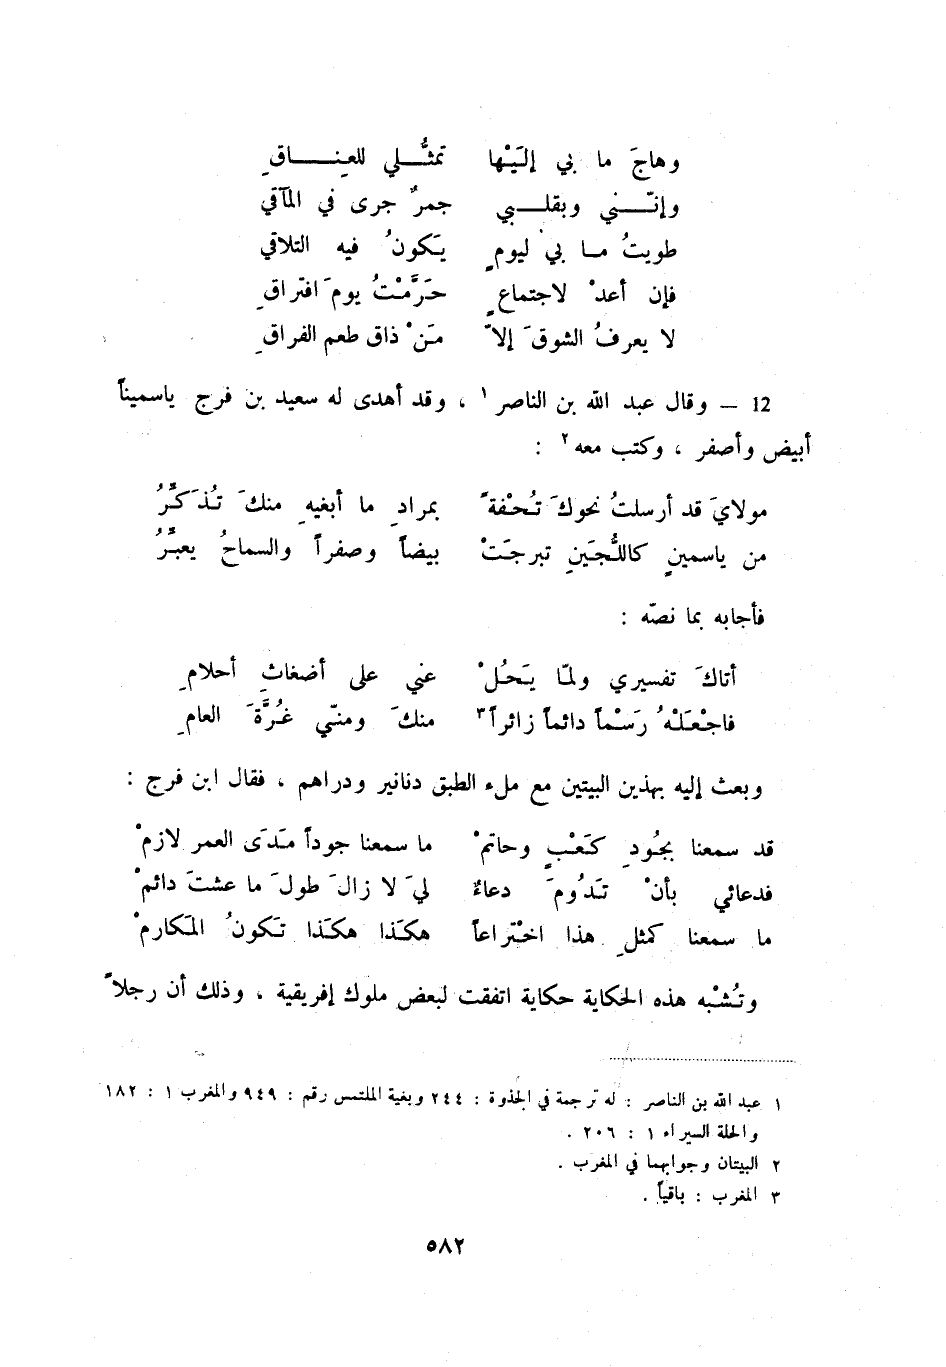 وهاجَ ما بي إليَنْها تمثُّـــلي للعِنـــــاقِ
وإنّـــــني وبقلـــبي جمرٌ جرى في المآقي
طويتُ مــا بي ليومٍ يَكونُ فيه التلاقي
فإن أعدْ لاجتماعٍ حَرَّمْتُ يومَ افتراقِ
لا يعرفُ الشوقَ إلاّ مَنْ ذاق طعم الفراقِ
12 – وقال عبد الله بن الناصر ١ ، وقد أهدى له سعيد بن فرج ياسميناً
أبيض وأصفر ، وكتب معه ٢ :
مولايَ قد أرسلتُ نحوكَ تُحْفةً بمرادِ ما أبغيهِ منكَ تُذَكِّرُ
من ياسمينٍ كاللُّجَينِ تبرجَتْ بيضاً وصفراً والسماحُ يعبِّرُ
فأجابه بما نصّه :
أتاكَ تفسيري ولمّا يَحُلْ عني على أضغاثِ أحلامِ
فاجْعَلْهُ رَسْماً دائماً زائراً٣ منكَ ومنّي غُرَّةَ العامِ
وبعث إليه بهذين البيتين مع ملء الطبق دنانير ودراهم ، فقال ابن فرج :
قد سمعنا بجُودِ كَعْبٍ وحاتمْ ما سمعنا جوداً مَدَى العمر لازمْ
فدعائي بأنْ تَدُومَ دعاءٌ ليَ لا زالَ طولَ ما عشتَ دائمْ
ما سمعنا كمثلِ هذا اخْتراعاً هكَذا هكَذا تَكونُ المَكارمْ
وتُشْبه هذه الحكاية حكاية اتفقت لبعض ملوك إفريقية ، وذلك أن رجلاً
١ عبد الله بن الناصر : له ترجمة في الجذوة : ٢٤٤ وبغية الملتمس رقم : ٩٤٩ والمغرب ١ : ١٨٢
والحلة السيراء ١ : ٢٠٦ .
٢ البيتان وجوابهما في المغرب .
٣ المغرب : باقياً .
٥٨٢